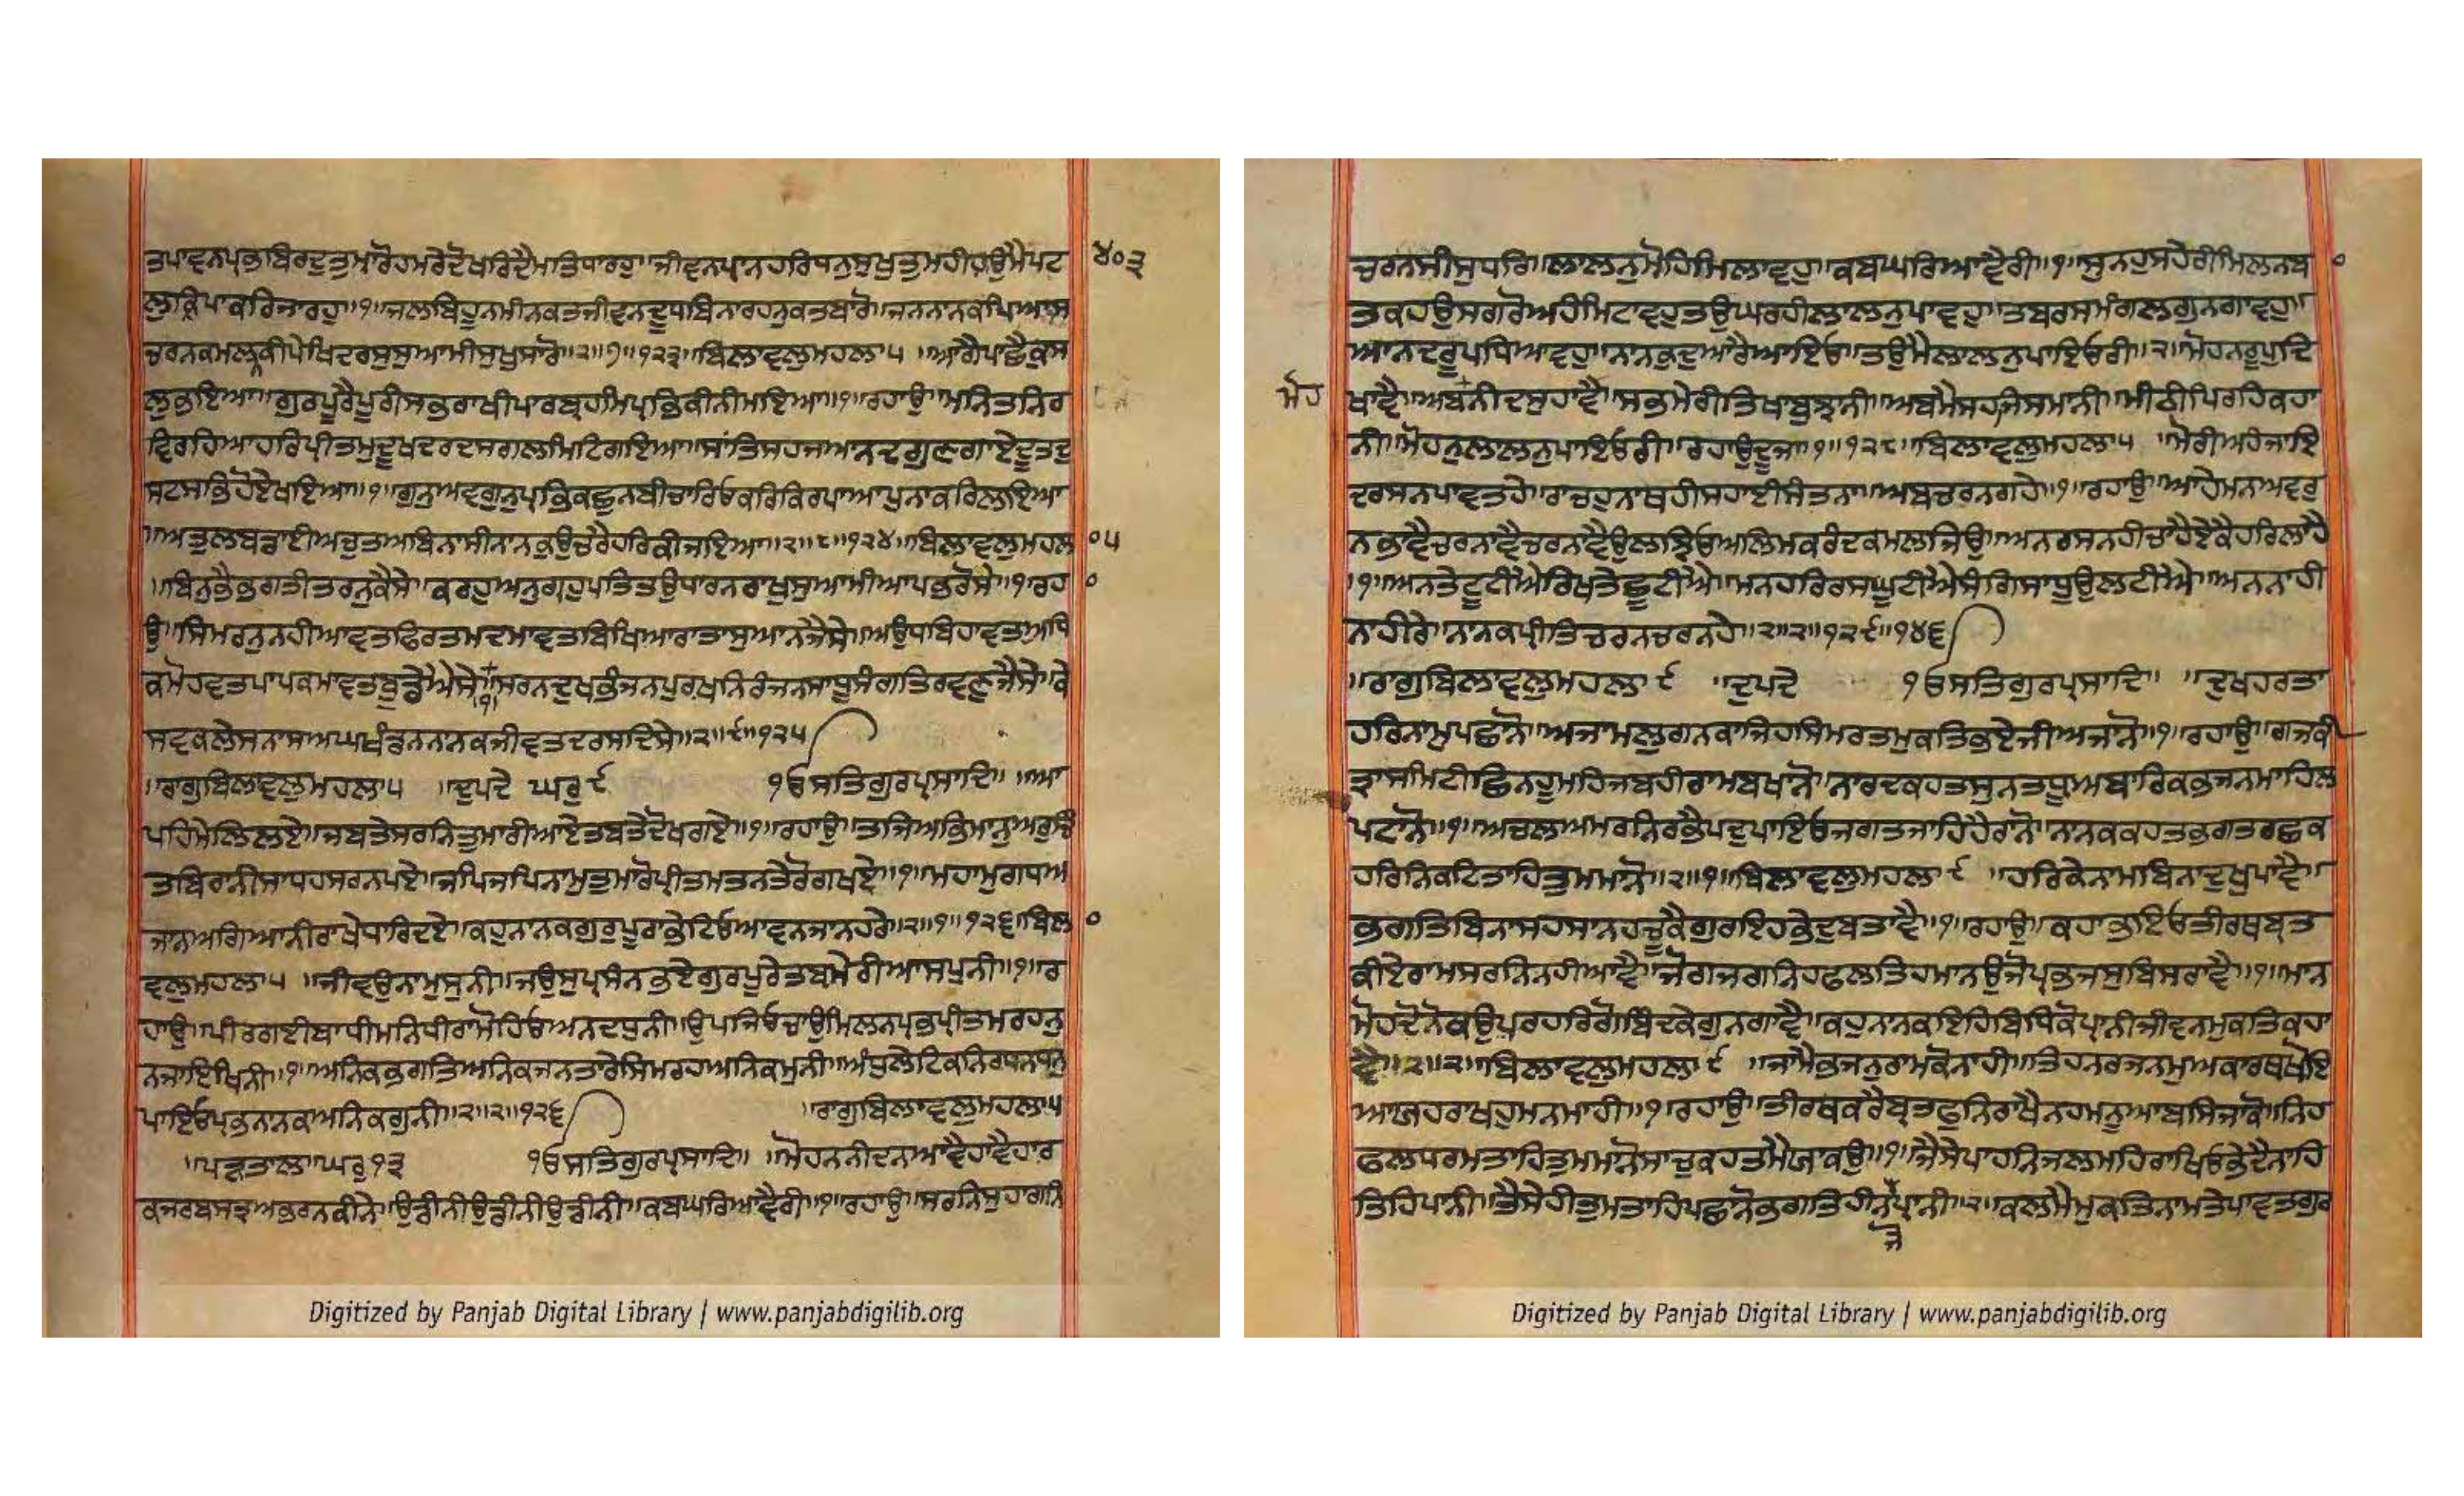 ਤਪਾਵਨਪ੍ਰਭਬਿਰਦੁਤੁਮਾਰੋਹਮਰੇਦੋਖਰਿਦੈਮਤਿਧਾਰਹੁ॥ਜੀਵਨਪ੍ਰਾਨਹਰਿਧਨੁਸੁਖੁਤੁਮਹੀਹਉਮੈਪਟ ੪੦੩
ਲੁਕ੍ਰਿਪਾਕਰਿਜਾਰਹੁ॥੧॥ਜਲਬਿਹੂਨਮੀਨਕਤਜੀਵਨਦੂਧਬਿਨਾਰਹਨੁਕਤਬਾਰੋ॥ਜਨਨਾਨਕਪਿਆਸ
ਚਰਨਕਮਲਨ੍ਹਕੀਪੇਖਿਦਰਸੁਸੁਆਮੀਸੁਖੁਸਾਰੋ॥੨॥੭॥੧੨੩॥ਬਿਲਾਵਲੁਮਹਲਾ੫ ॥ਆਗੈਪਾਛੈਕੁਸ
ਲੁਭਇਆ॥ਗੁਰਪੂਰੈਪੂਰੀਸਭਰਾਖੀਪਾਰਬ੍ਰਹਮਿਪ੍ਰਭਿਕੀਨੀਮਇਆ॥੧॥ਰਹਾਉ॥ਮਨਿਤਨਿਰ
ਵਿਰਹਿਆਹਰਿਪ੍ਰੀਤਮੁਦੂਖਦਰਦਸਗਲਾਮਿਟਿਗਇਆ॥ਸਾਂਤਿਸਹਜਆਨਦਗੁਣਗਾਏਦੂਤਦੁ
ਸਟਸਭਿਹੋਏਖਇਆ॥੧॥ਗੁਨੁਅਵਗੁਨੁਪ੍ਰਭਿਕਛੁਨਬੀਚਾਰਿਓਕਰਿਕਿਰਪਾਆਪੁਨਾਕਰਿਲਇਆ
॥ਅਤੁਲਬਡਾਈਅਚੁਤਅਬਿਨਾਸੀਨਾਨਕੁਉਚਰੈਹਰਿਕੀਜਇਆ॥੨॥੮॥੧੨੪॥ਬਿਲਾਵਲੁਮਹਲ ੦੫
॥ਬਿਨੁਭੈਭਗਤੀਤਰਨੁਕੈਸੇ॥ਕਰਹੁਅਨੁਗ੍ਰਹੁਪਤਿਤਉਧਾਰਨਰਾਖੁਸੁਆਮੀਆਪਭਰੋਸੇ॥੧॥ਰਹ ੦
ਉ॥ਸਿਮਰਨੁਨਹੀਆਵਤਫਿਰਤਮਦਮਾਵਤਬਿਖਿਆਰਾਤਾਸੁਆਨਜੈਸੇ॥ਅਉਧਬਿਹਾਵਤਅਧਿ
ਕਮੋਹਵਤਪਾਪਕਮਾਵਤਬੁਡੇਐਸੇ॥੧॥ਸਰਨਦੁਖਭੰਜਨਪੁਰਖਨਿਰੰਜਨਸਾਧੂਸੰਗਤਿਰਵਣੁਜੈਸੇ॥ਕੇ
ਸਵਕਲੇਸਨਾਸਅਘਖੰਡਨਨਾਨਕਜੀਵਤਦਰਸਦਿਸੇ॥੨॥੯॥੧੨੫
॥ਰਾਗੁਬਿਲਾਵਲੁਮਹਲਾ੫ ॥ਦੁਪਦੇ ਘਰੁ੯ ੧ਓਸਤਿਗੁਰਪ੍ਰਸਾਦਿ॥ ॥ਆ
ਪਹਿਮੇਲਿਲਏ॥ਜਬਤੇਸਰਨਿਤੁਮਾਰੀਆਏਤਬਤੇਦੋਖਗਏ॥੧॥ਰਹਾਉ॥ਤਜਿਅਭਿਮਾਨੁਅਰੁਚਿੰ
ਤਬਿਰਾਨੀਸਾਧਹਸਰਨਪਏ॥ਜਪਿਜਪਿਨਾਮੁਤੁਮਾਰੋਪ੍ਰੀਤਮਤਨਤੇਰੋਗਖਏ॥੧॥ਮਹਾਮੁਗਧਅ
ਜਾਨਅਗਿਆਨੀਰਾਖੇਧਾਰਿਦਏ॥ਕਹੁਨਾਨਕਗੁਰੁਪੂਰਾਭੇਟਿਓਆਵਨਜਾਨਰਹੇ॥੨॥੧॥੧੨੬॥ਬਿਲ ੦
ਵਲੁਮਹਲਾ੫ ॥ਜੀਵਉਨਾਮੁਸੁਨੀ॥ਜਉਸੁਪ੍ਰਸੰਨਭਏਗੁਰਪੂਰੇਤਬਮੇਰੀਆਸਪੁਨੀ॥੧॥ਰ
ਹਾਉ॥ਪੀਰਗਈਬਾਧੀਮਨਿਧੀਰਾਮੋਹਿਓਅਨਦਧੁਨੀ॥ਉਪਜਿਓਚਾਉਮਿਲਨਪ੍ਰਭਪ੍ਰੀਤਮਰਹਨੁ
ਨਜਾਇਖਿਨੀ॥੧॥ਅਨਿਕਭਗਤਿਅਨਿਕਜਨਤਾਰੇਸਿਮਰਹਅਨਿਕਮੁਨੀ॥ਅੰਧੁਲੇਟਿਕਨਿਰਧਨਧਨੁ
ਪਾਇਓਪ੍ਰਭਨਾਨਕਅਨਿਕਗੁਨੀ॥੨॥੨॥੧੨੬ ॥ਰਾਗੁਬਿਲਾਵਲੁਮਹਲਾ੫
॥ਪੜਤਾਲਾ॥ਘਰੁ੧੩ ੧ਓਸਤਿਗੁਰਪ੍ਰਸਾਦਿ॥ ॥ਮੋਹਨਨੀਦਨਾਆਵੈਹਾਵੈਹਾਰ
ਕਜਰਬਸਤ੍ਰਅਭਰਨਕੀਨੇ॥ਉਡੀਨੀਉਡੀਨੀਉਡੀਨੀ॥ਕਬਘਰਿਆਵੈਰੀ॥੧॥ਰਹਾਉ॥ਸਰਨਿਸੁਹਾਗਨਿ
Digitized by Panjab Digital Library | www.panjabdigilib.org
ਚਰਨਸੀਸੁਧਰਿ॥ਲਾਲਨੁਮੋਹਿਮਿਲਾਵਹੁ॥ਕਬਘਰਿਆਵੈਰੀ॥੧॥ਸੁਨਹੁਸਹੇਰੀਮਿਲਨਬ ੦
ਤਕਹਉਸਗਰੋਅਹੰਮਿਟਾਵਹੁਤਉਘਰਹੀਲਾਲਨੁਪਾਵਹੁ॥ਤਬਰਸਮੰਗਲਗੁਨਗਾਵਹੁ॥
ਆਨਦਰੂਪਧਿਆਵਹੁ॥ਨਾਨਕਦੁਆਰੈਆਇਓ॥ਤਉਮੈਲਾਲਨੁਪਾਇਓਰੀ॥੨॥ਮੋਹਨਰੂਪੁਦਿ
ਖਾਵੈ॥ਅਬਨੀਦਸੁਹਾਵੈ॥ਸਭਮੇਰੀਤਿਖਾਬੁਝਾਨੀ॥ਅਬਮੈਸਹਜਿਸਮਾਨੀ॥ਮੀਠੀਪਿਰਹਿਕਹਾ ਮੋਹ
ਨੀ॥ਮੋਹਨੁਲਾਲਨੁਪਾਇਓਰੀ॥ਰਹਾਉਦੂਜਾ॥੧॥੧੨੮॥ਬਿਲਾਵਲੁਮਹਲਾ੫ ॥ਮੋਰੀਅਹੰਜਾਇ
ਦਰਸਨਪਾਵਤਹੇ॥ਰਾਚਹੁਨਾਥਹੀਸਹਾਈਸੰਤਨਾ॥ਅਬਚਰਨਗਹੇ॥੧॥ਰਹਾਉ॥ਆਹੇਮਨਅਵਰੁ
ਨਭਾਵੈਚਰਨਾਵੈਚਰਨਾਵੈਉਲਝਿਓਅਲਿਮਕਰੰਦਕਮਲਜਿਉ॥ਅਨਰਸਨਹੀਚਾਹੈਏਕੈਹਰਿਲਾਹੈ
॥੧॥ਅਨਤੇਟੂਟੀਐਰਿਖਤੇਛੂਟੀਐ॥ਮਨਹਰਿਰਸਘੂਟੀਐਸੰਗਿਸਾਧੂਉਲਟੀਐ॥ਅਨਨਾਹੀ
ਨਾਹੀਰੇ॥ਨਾਨਕਪ੍ਰੀਤਿਚਰਨਚਰਨਹੇ॥੨॥੨॥੧੨੯॥੧੪੬
॥ਰਾਗੁਬਿਲਾਵਲੁਮਹਲਾ੯ ॥ਦੁਪਦੇ ੧ਓਸਤਿਗੁਰਪ੍ਰਸਾਦਿ॥ ॥ਦੁਖਹਰਤਾ
ਹਰਿਨਾਮੁਪਛਾਨੋ॥ਅਜਾਮਲੁਗਨਕਾਜਿਹਸਿਮਰਤਮੁਕਤਿਭਏਜੀਅਜਾਨੋ॥੧॥ਰਹਾਉ॥ਗਜਕੀ
ਤ੍ਰਾਸਮਿਟੀਛਿਨਹੂਮਹਿਜਬਹੀਰਾਮਬਖਾਨੋ॥ਨਾਰਦਕਹਤਸੁਨਤਧ੍ਰੂਅਬਾਰਿਕਭਜਨਮਾਹਿਲ
ਪਟਾਨੋ॥੧॥ਅਚਲਅਮਰਨਿਰਭੈਪਦੁਪਾਇਓਜਗਤਜਾਹਿਹੈਰਾਨੋ॥ਨਾਨਕਕਹਤਭਗਤਰਛਕ
ਹਰਿਨਿਕਟਿਤਾਹਿਤੁਮਮਾਨੋ॥੨॥੧॥ਬਿਲਾਵਲੁਮਹਲਾ੯ ॥ਹਰਿਕੇਨਾਮਬਿਨਾਦੁਖੁਪਾਵੈ॥
ਭਗਤਿਬਿਨਾਸਹਸਾਨਹਚੂਕੈਗੁਰਇਹਭੇਦੁਬਤਾਵੈ॥੧॥ਰਹਾਉ॥ਕਹਾਭਇਓਤੀਰਥਬ੍ਰਤ
ਕੀਏਰਾਮਸਰਨਿਨਹੀਆਵੈ॥ਜੋਗਜਗਨਿਹਫਲਤਿਹਮਾਨਉਜੋਪ੍ਰਭਜਸੁਬਿਸਰਾਵੈ॥੧॥ਮਾਨ
ਮੋਹਦੋਨੋਕਉਪਰਹਰਿਗੋਬਿੰਦਕੇਗੁਨਗਾਵੈ॥ਕਹੁਨਾਨਕਇਹਿਬਿਧਿਕੋਪ੍ਰਾਨੀਜੀਵਨਮੁਕਤਿਕਹਾ
ਵੈ॥੨॥੨॥ਬਿਲਾਵਲੁਮਹਲਾ੯ ॥ਜਾਮੈਭਜਨੁਰਾਮਕੋਨਾਹੀ॥ਤਿਹਨਰਜਨਮੁਅਕਾਰਥਖੋਇ
ਆਯਹਰਾਖਹੁਮਨਮਾਹੀ॥੧॥ਰਹਾਉ॥ਤੀਰਥਕਰੈਬ੍ਰਤਫੁਨਿਰਾਖੈਨਹਮਨੂਆਬਸਿਜਾਕੋ॥ਨਿਹ
ਫਲਧਰਮਤਾਹਿਤੁਮਮਾਨੋਸਾਚੁਕਹਤਮੈਯਾਕਉ॥੧॥ਜੈਸੇਪਾਹਨਿਜਲਮਹਿਰਾਖਿਓਭੇਦੈਨਾਹਿ
ਤਿਹਿਪਾਨੀ॥ਤੈਸੇਹੀਤੁਮਤਾਹਿਪਛਾਨੋਭਗਤਿਹੀਨਪ੍ਰਾਨੀ॥੨॥ਕਲਮੈਮੁਕਤਿਨਾਮਤੇਪਾਵਤਗੁਰ
ਜੋ
Digitized by Panjab Digital Library | www.panjabdigilib.org